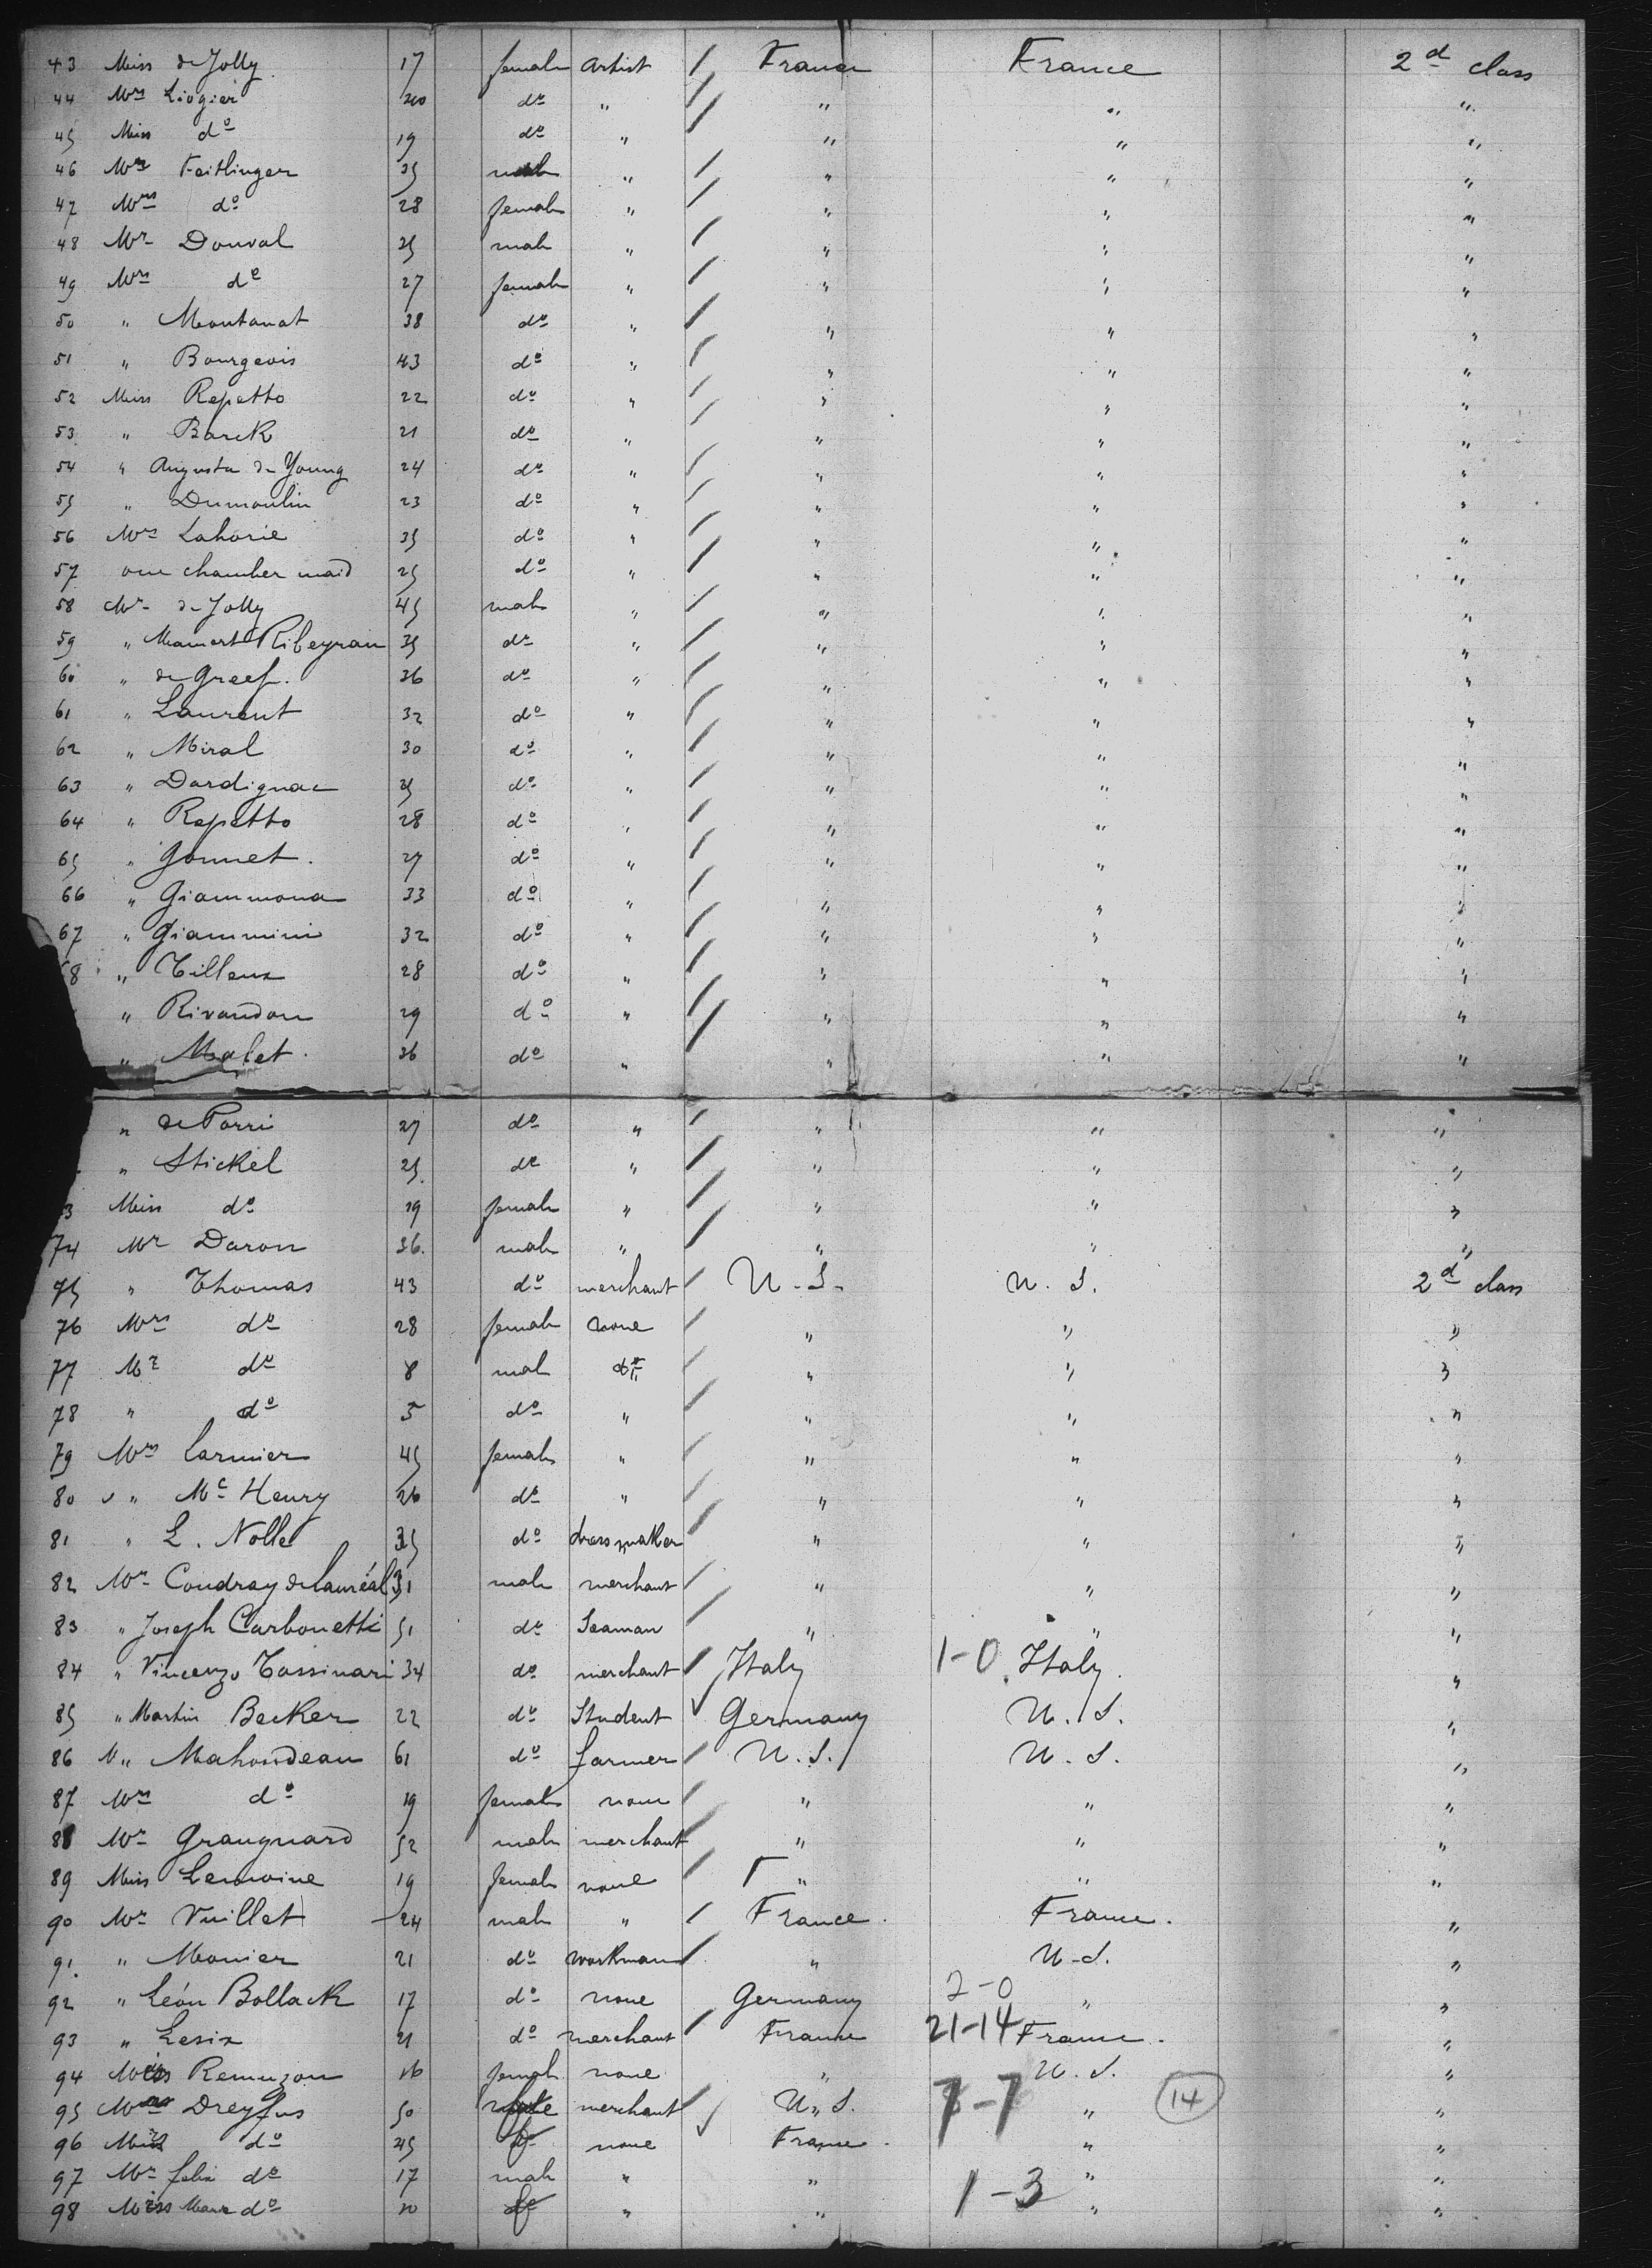 43 Miss de Jolly 17 female Artist / France France 2d class
44 Mrs Liogier do " / " " "
45 Miss do 19 do " / " " "
46 Mr Feitlinger 35 male " / " " "
47 Mrs do 28 female " / " " "
48 Mr Douval 25 male " / " " "
49 Mrs do 27 female " / " " "
50 " Montanat 38 do " / " " "
51 " Bourgeois 43 do " / " " "
52 Miss Repetto 22 do " / " " "
53 " Barck 21 do " / " " "
54 " Augusta de Young 24 do " / " " "
55 " Dumoulin 23 do " / " " "
56 Mrs Lahorie 35 do " / " " "
57 one chamber maid 25 do " / " " "
58 Mr de Jolly 45 male " / " " "
59 " Mamert Ribeyran 35 do " / " " "
60 " de Greef. 36 do " / " " "
61 " Laurent 32 do " / " " "
62 " Miral 30 do " / " " "
63 " Dardignac 25 do " / " " "
64 " Repetto 28 do " / " " "
65 " Gonnet. 27 do " / " " "
66 " Giammona 33 do " / " " "
67 " Giammini 32 do " / " " "
8 " Tilleux 28 do " / " " "
" Rivaudon 29 do " / " " "
" Malet. 36 do " / " " "
" de Porri 27 do " / " " "
" Stickel 25. do " / " " "
3 Miss do 19 female " / " " "
74 Mr Daron 36. male " / " " "
75 " Thomas 43 do merchant / U. S. U. S. 2d class
76 Mrs do 28 female none / " " "
77 Mr do 8 male do / " " "
78 " do 5 do " / " " "
79 Mrs Larmier 45 female " / " " "
80 " Mc Henry 26 do " / " " "
81 " L. Nolle 35 do dressmaker / " " "
82 Mr Coudray de Lauréal 31 male merchant / " " "
83 " Joseph Carbonetti 51 do Seaman / " " "
84 " Vincenzo Tassinari 34 do merchant / Italy 1-0 Italy. "
85 " Martin Becker 22 do Student ✓ Germany U. S. "
86 " Mahoudeau 61 do farmer / U. S. U. S. "
87 Mrs do 19 female none / " " "
88 Mr Grangnard 52 male merchant / " " "
89 Miss Lemoine 19 female none / " " "
90 Mr Vuillet 24 male " / France. France. "
91. " Monier 21 do workman / " U. S. "
92 " Léon Bollack 17 do none Germany 2-0 " "
93 " Lesix 21 do merchant / France 21-14 France. "
94 Miss Remuzon 16 female none " U. S. "
95 Dreyfus 50 merchant / U. S. 7-7 " 14 "
96 do 45 none ✓ France. " "
97 Mr felix do 17 male " " " "
98 Miss do 10 " " 1-3 " "